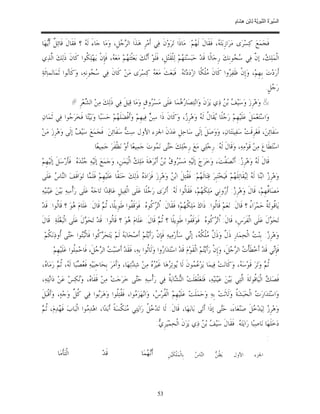 السّيرة النّبويّة لابن هشام
فَجَمَعَ كِسْرَى مَرَازِبَتَهُ، فَقَالَ لَهُمْ مَاذَا تَرَوْنَ فِي أَمْرِ هَذَا الرّجُلِ، وَمَا جَاءَ لَهُ ؟ فَقَالَ قَائِلٌ أَيّهَا
الْمَلِكُ، إنّ فِي سُجُونِكَ رِجَالًا قَدْ حَبَسْتَهُمْ لِلْقَتْلِ، فَلَوْ أَنّك بَعَثْتَهُمْ مَعَهُ، فَإِنْ يَهْلِكُوا كَانَ ذَلِكَ الّذِي
أَرَدْت بِهِمْ، وَإِنْ ظَفِرُوا كَانَ مُلْكًا ازْدَدْتَهُ. فَبَعَثَ مَعَهُ كِسْرَى مَنْ كَانَ فِي سُجُونِهِ، وَكَانُوا ثَمَانَمِائَةِ
رَجُلٍ
وَهْرِز وَسَيْفُ بْنُ ذِي يَزَن وَانْتِصَارُهُمَا عَلَى مَسْرُوقٍ وَمَا قِيلَ فِي ذَلِكَ مِنْ الشّعْرِ
وَاسْتَعْمَلَ عَلَيْهِمْ رَجُلًا يُقَالُ لَهُ وَهْرِزُ، وَكَانَ ذَا سِنّ فِيهِمْ وَأَفْضَلَهُمْ حَسَبًا وَبَيْتًا فَخَرَجُوا فِي ثَمَانِ
سَفَائِنَ، فَغَرِقَتْ سَفِينَتَانِ، وَوَصَلَ إلَى سَاحِلِ عَدَنَ الجزء الأول سِتّ سَفَائِنَ. فَجَمَعَ سَيْفٌ إلَى وَهْرِزَ مَنْ
اسْتَطَاعَ مِنْ قَوْمِهِ، وَقَالَ لَهُ رِجْلِي مَعَ رِجْلِك حَتّى نَمُوتَ جَمِيعًا أَوْ نَظْفَرَ جَمِيعًا
قَالَ لَهُ وَهْرِزُ أَنْصَفْتَ، وَخَرَجَ إلَيْهِ مَسْرُوقُ بْنُ أَبْرَهَةَ مَلِكُ الْيَمَنِ، وَجَمَعَ إلَيْهِ جُنْدَهُ فَأَرْسَلَ إلَيْهِمْ
وَهْرِزُ ابْنًا لَهُ لِيُقَاتِلَهُمْ فَيَخْتَبِرَ قِتَالَهُمْ فَقُتِلَ ابْنُ وَهْرِزَ فَزَادَهُ ذَلِكَ حَنَقًا عَلَيْهِمْ فَلَمّا تَوَاقَفَ النّاسُ عَلَى
مَصَافّهِمْ، قَالَ وَهْرِزُ أَرُونِي مَلِكَهُمْ، فَقَالُوا لَهُ أَتَرَى رَجُلًا عَلَى الْفِيلِ عَاقِدًا تَاجَهُ عَلَى رَأْسِهِ بَيْنَ عَيْنَيْهِ
يَاقُوتَةٌ حَمْرَاءُ ؟ قَالَ نَعَمْ قَالُوا ذَاكَ مَلِكُهُمْ، فَقَالَ اُتْرُكُوهُ فَوَقَفُوا طَوِيلًا، ثُمّ قَالَ عَلَامَ هُوَ ؟ قَالُوا قَدْ
تَحَوّلَ عَلَى الْفَرَسِ، قَالَ اُتْرُكُوهُ فَوَقَفُوا طَوِيلًا ثُمّ قَالَ عَلَامَ هُوَ ؟ قَالُوا قَدْ تَحَوّلَ عَلَى الْبَغْلَةِ قَالَ
وَهْرِزُ بِنْتُ الْحِمَارِ ذَلّ وَذَلّ مُلْكُهُ، إنّي سَأَرْمِيهِ فَإِنْ رَأَيْتُمْ أَصْحَابَهُ لَمْ يَتَحَرّكُوا فَاثْبُتُوا حَتّى أُوذِنَكُمْ
فَإِنّي قَدْ أَخْطَأْت الرّجُلَ، وَإِنْ رَأَيْتُمْ الْقَوْمَ قَدْ اسْتَدَارُوا وَلَاثُوا بِهِ، فَقَدْ أَصَبْتُ الرّجُلَ، فَاحْمِلُوا عَلَيْهِمْ
ثُمّ وَتَرَ قَوْسَهُ، وَكَانَتْ فِيمَا يَزْعُمُونَ لَا يُوتِرُهَا غَيْرُهُ مِنْ شِدّتِهَا، وَأَمَرَ بِحَاجِبَيْهِ فَعُصّبَا لَهُ، ثُمّ رَمَاهُ،
فَصَكّ الْيَاقُوتَةَ الّتِي بَيْنَ عَيْنَيْهِ، فَتَغَلْغَلَتْ النّشّابَةُ فِي رَأْسِهِ حَتّى خَرَجَتْ مِنْ قَفَاهُ، وَنُكِسَ عَنْ دَابّتِهِ،
وَاسْتَدَارَتْ الْحَبَشَةُ وَلَاثَتْ بِهِ وَحَمَلَتْ عَلَيْهِمْ الْفُرْسُ، وَانْهَزَمُوا، فَقُتِلُوا وَهَرَبُوا فِي كُلّ وَجْهٍ، وَأَقْبَلَ
وَهْرِزُ لِيَدْخُلَ صَنْعَاءَ، حَتّى إذَا أَتَى بَابَهَا، قَالَ لَا تَدْخُلُ رَايَتِي مُنَكّسَةً أَبَدًا، اهْدِمُوا الْبَابَ فَهُدِمَ، ثُمّ
دَخَلَهَا نَاصِبًا رَايَتَهُ فَقَالَ سَيْفُ بْنُ ذِي يَزَنَ الْحِمْيَرِيّ
الجزء الاول يَظُنّ النّاسُ بِالْمَلْكَيْنِ أَنّهُمَا قَدْ الْتَأَمَا
53